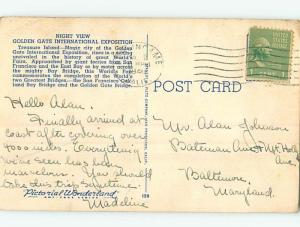 NIGHT VIEW
GOLDEN GATE INTERNATIONAL EXPOSITION
Treasure Island—Magic city of the Golden
Gate International Exposition, rises in a setting
unrivaled in the history of great World's
Fairs. Approached by giant ferries from San
Francisco and the East Bay or by motor across
the mighty Bay Bridge, this World's Fair
commemorates the completion of the World's
two Greatest Bridges — the San Francisco-Oak-
land Bay Bridge and the Golden Gate Bridge.
POST CARD
Hello Alan.
Finally arrived at
coast after covering over
4000 miles. Everything
we've seen has been
marvelous. You should
take this trip sometime.
Madeline
Mr. Alan Johnson
Bateman Ave
Baltimore,
Maryland.
Pictorial Wonderland